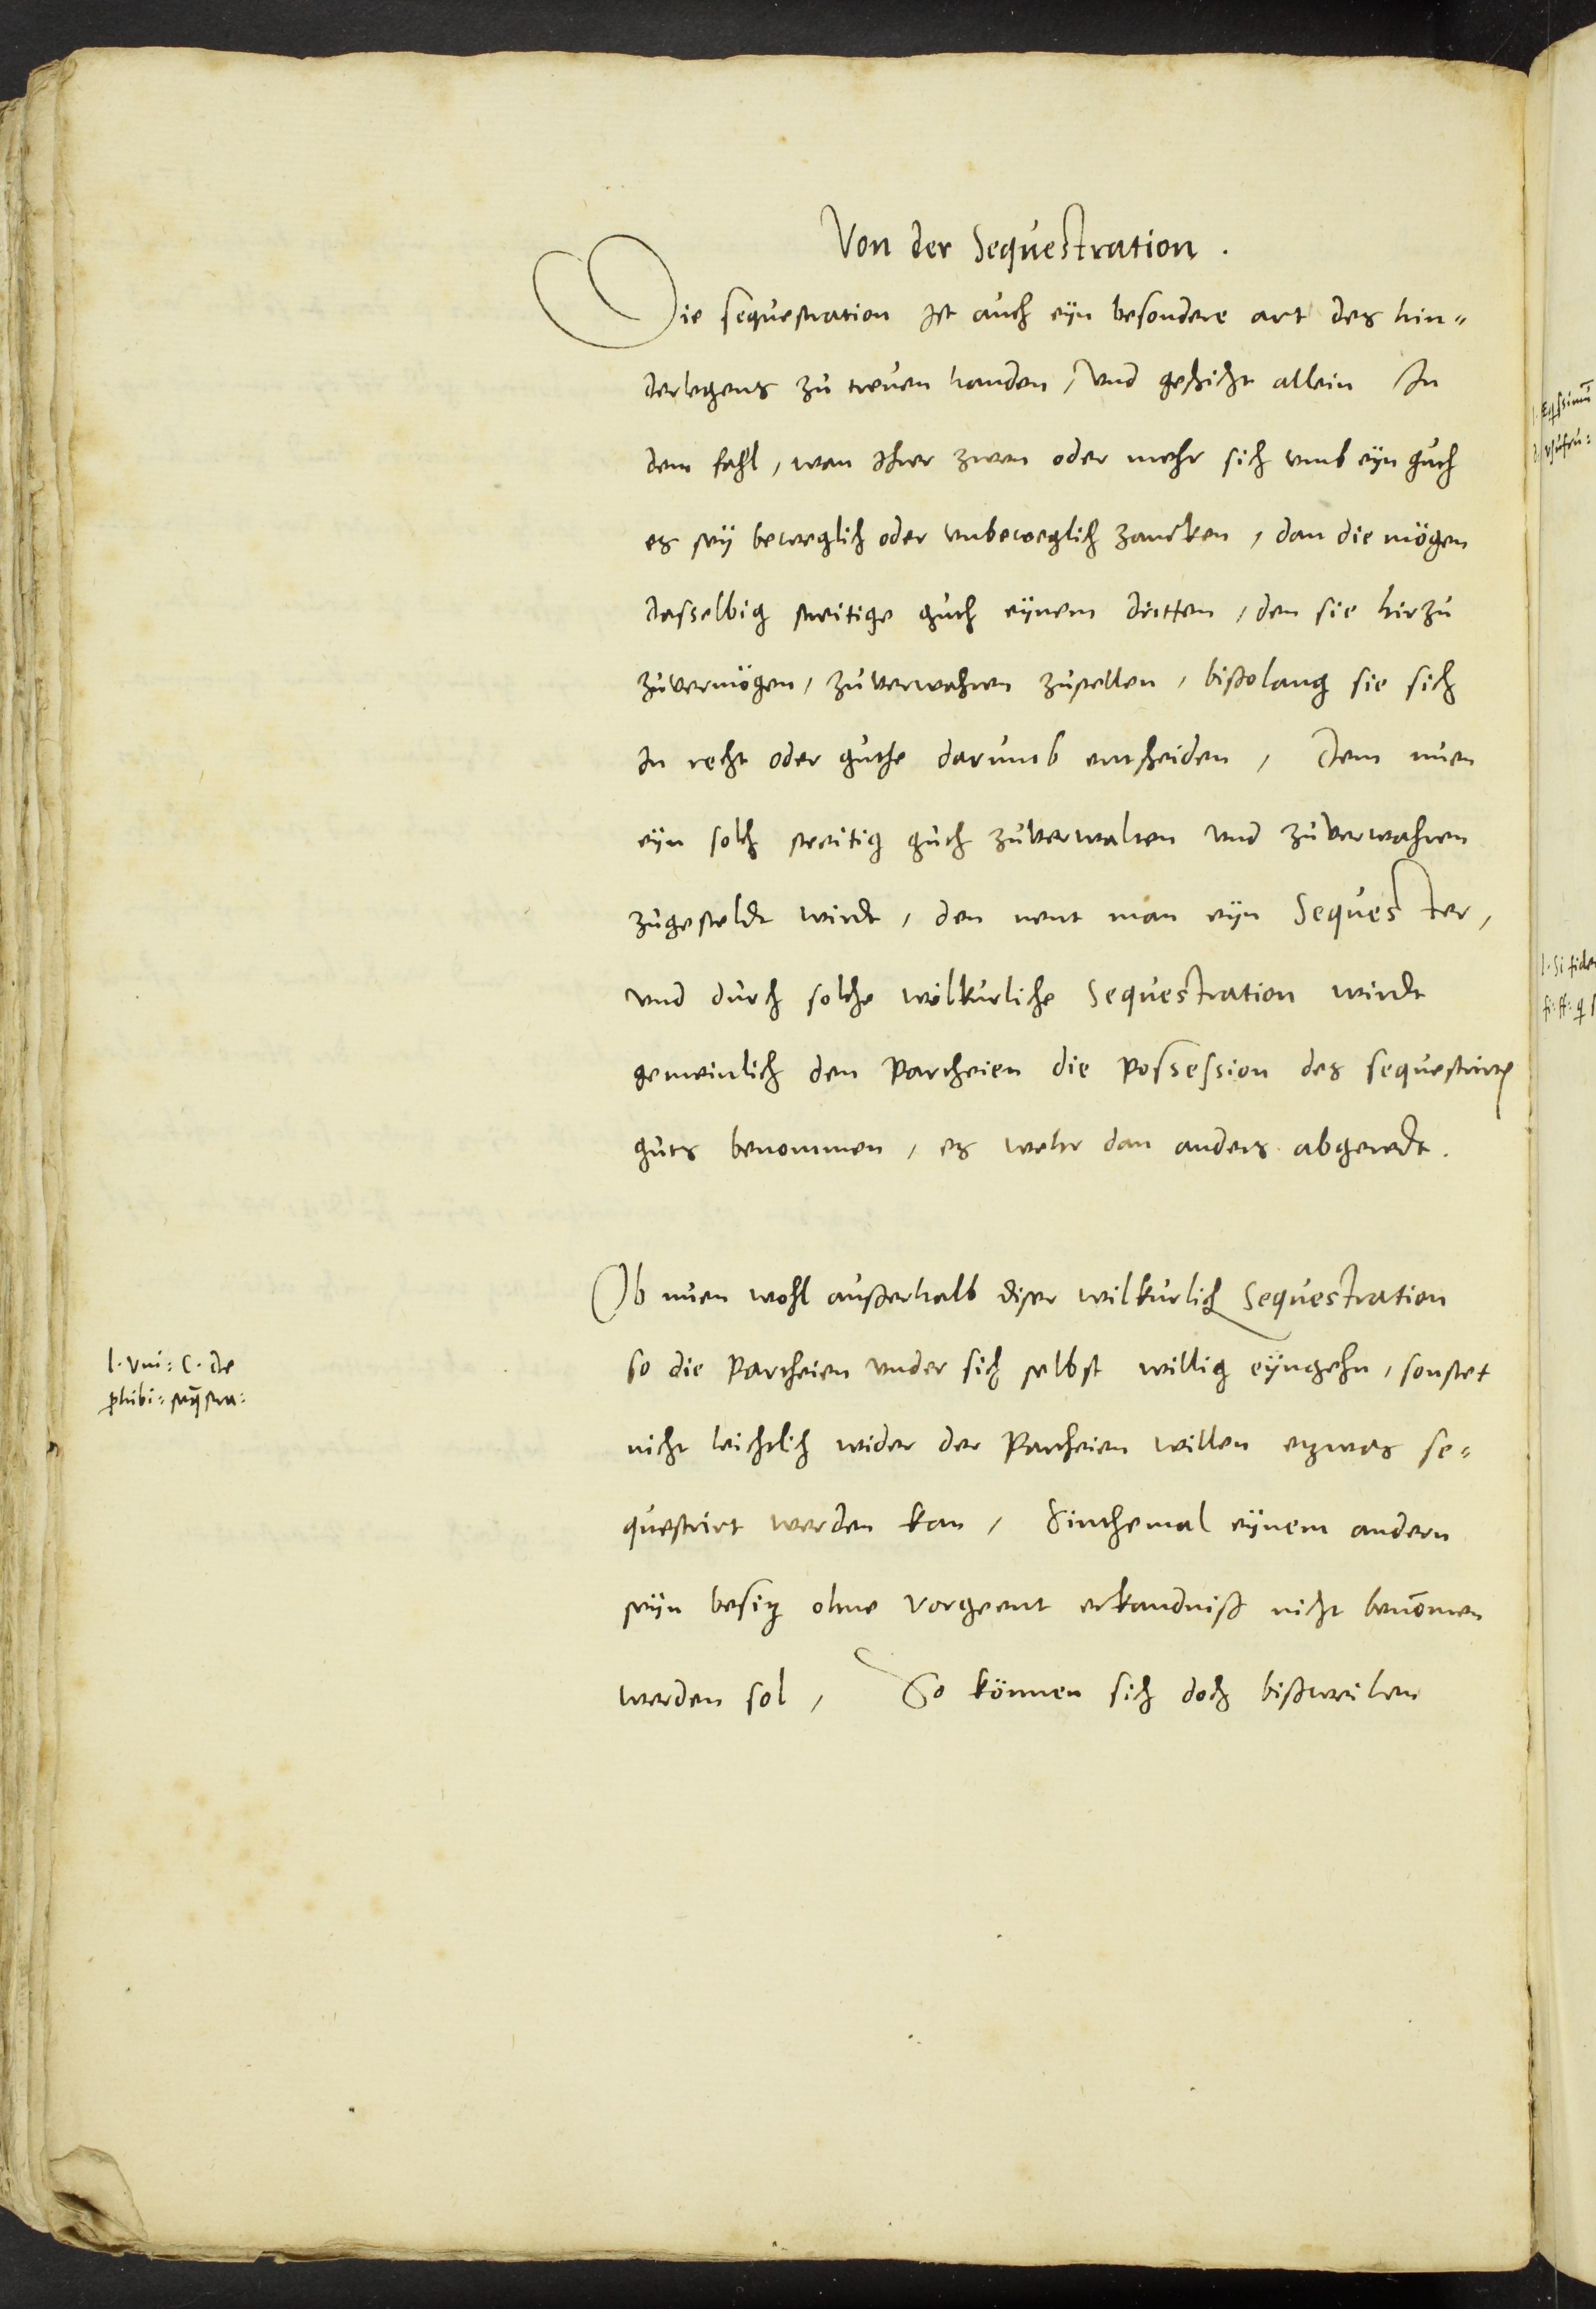 Von der Sequestration.
Die sequestration ist auch eyn besondere art des hin-
derlegens zu treuen handen, und geschicht allein In
dem fahl, wan Ihrer zwen oder mehr sich umb eyn guth
es sey beweglich oder unbeweglich zancken, dan die mögen
dasselbig streitige guth eynem dritten, den sie hirzu
zuvermögen, zuverwahren zustellen, bißolang sie sich
In recht oder guthe darumb entscheiden, Dem nuen
eyn solch streitig guth zuverwalten und zuverwahren
zugesteldt wirdt, den nent man eyn Sequester,
und durch solche wilkurliche Sequestration wirdt
gemeinlich den Partheien die possession des sequestrirten
guts benommen, es wehr dan anders abgeredt.
Ob nuen wohl außerhalb diser wilkurlich Sequestration
l. uni: C. de
so die Partheien under sich selbst willig eyngehn, sonstet
prohibi: sequestra:
nicht leichtlich wider der Partheien willen etzwas se-
questrirt werden kan, Sinthemal eynem andern
seyn besitz ohne vorgeent erkandniß nicht benommen
werden sol, So können sich doch bißweilen
l. Si fide